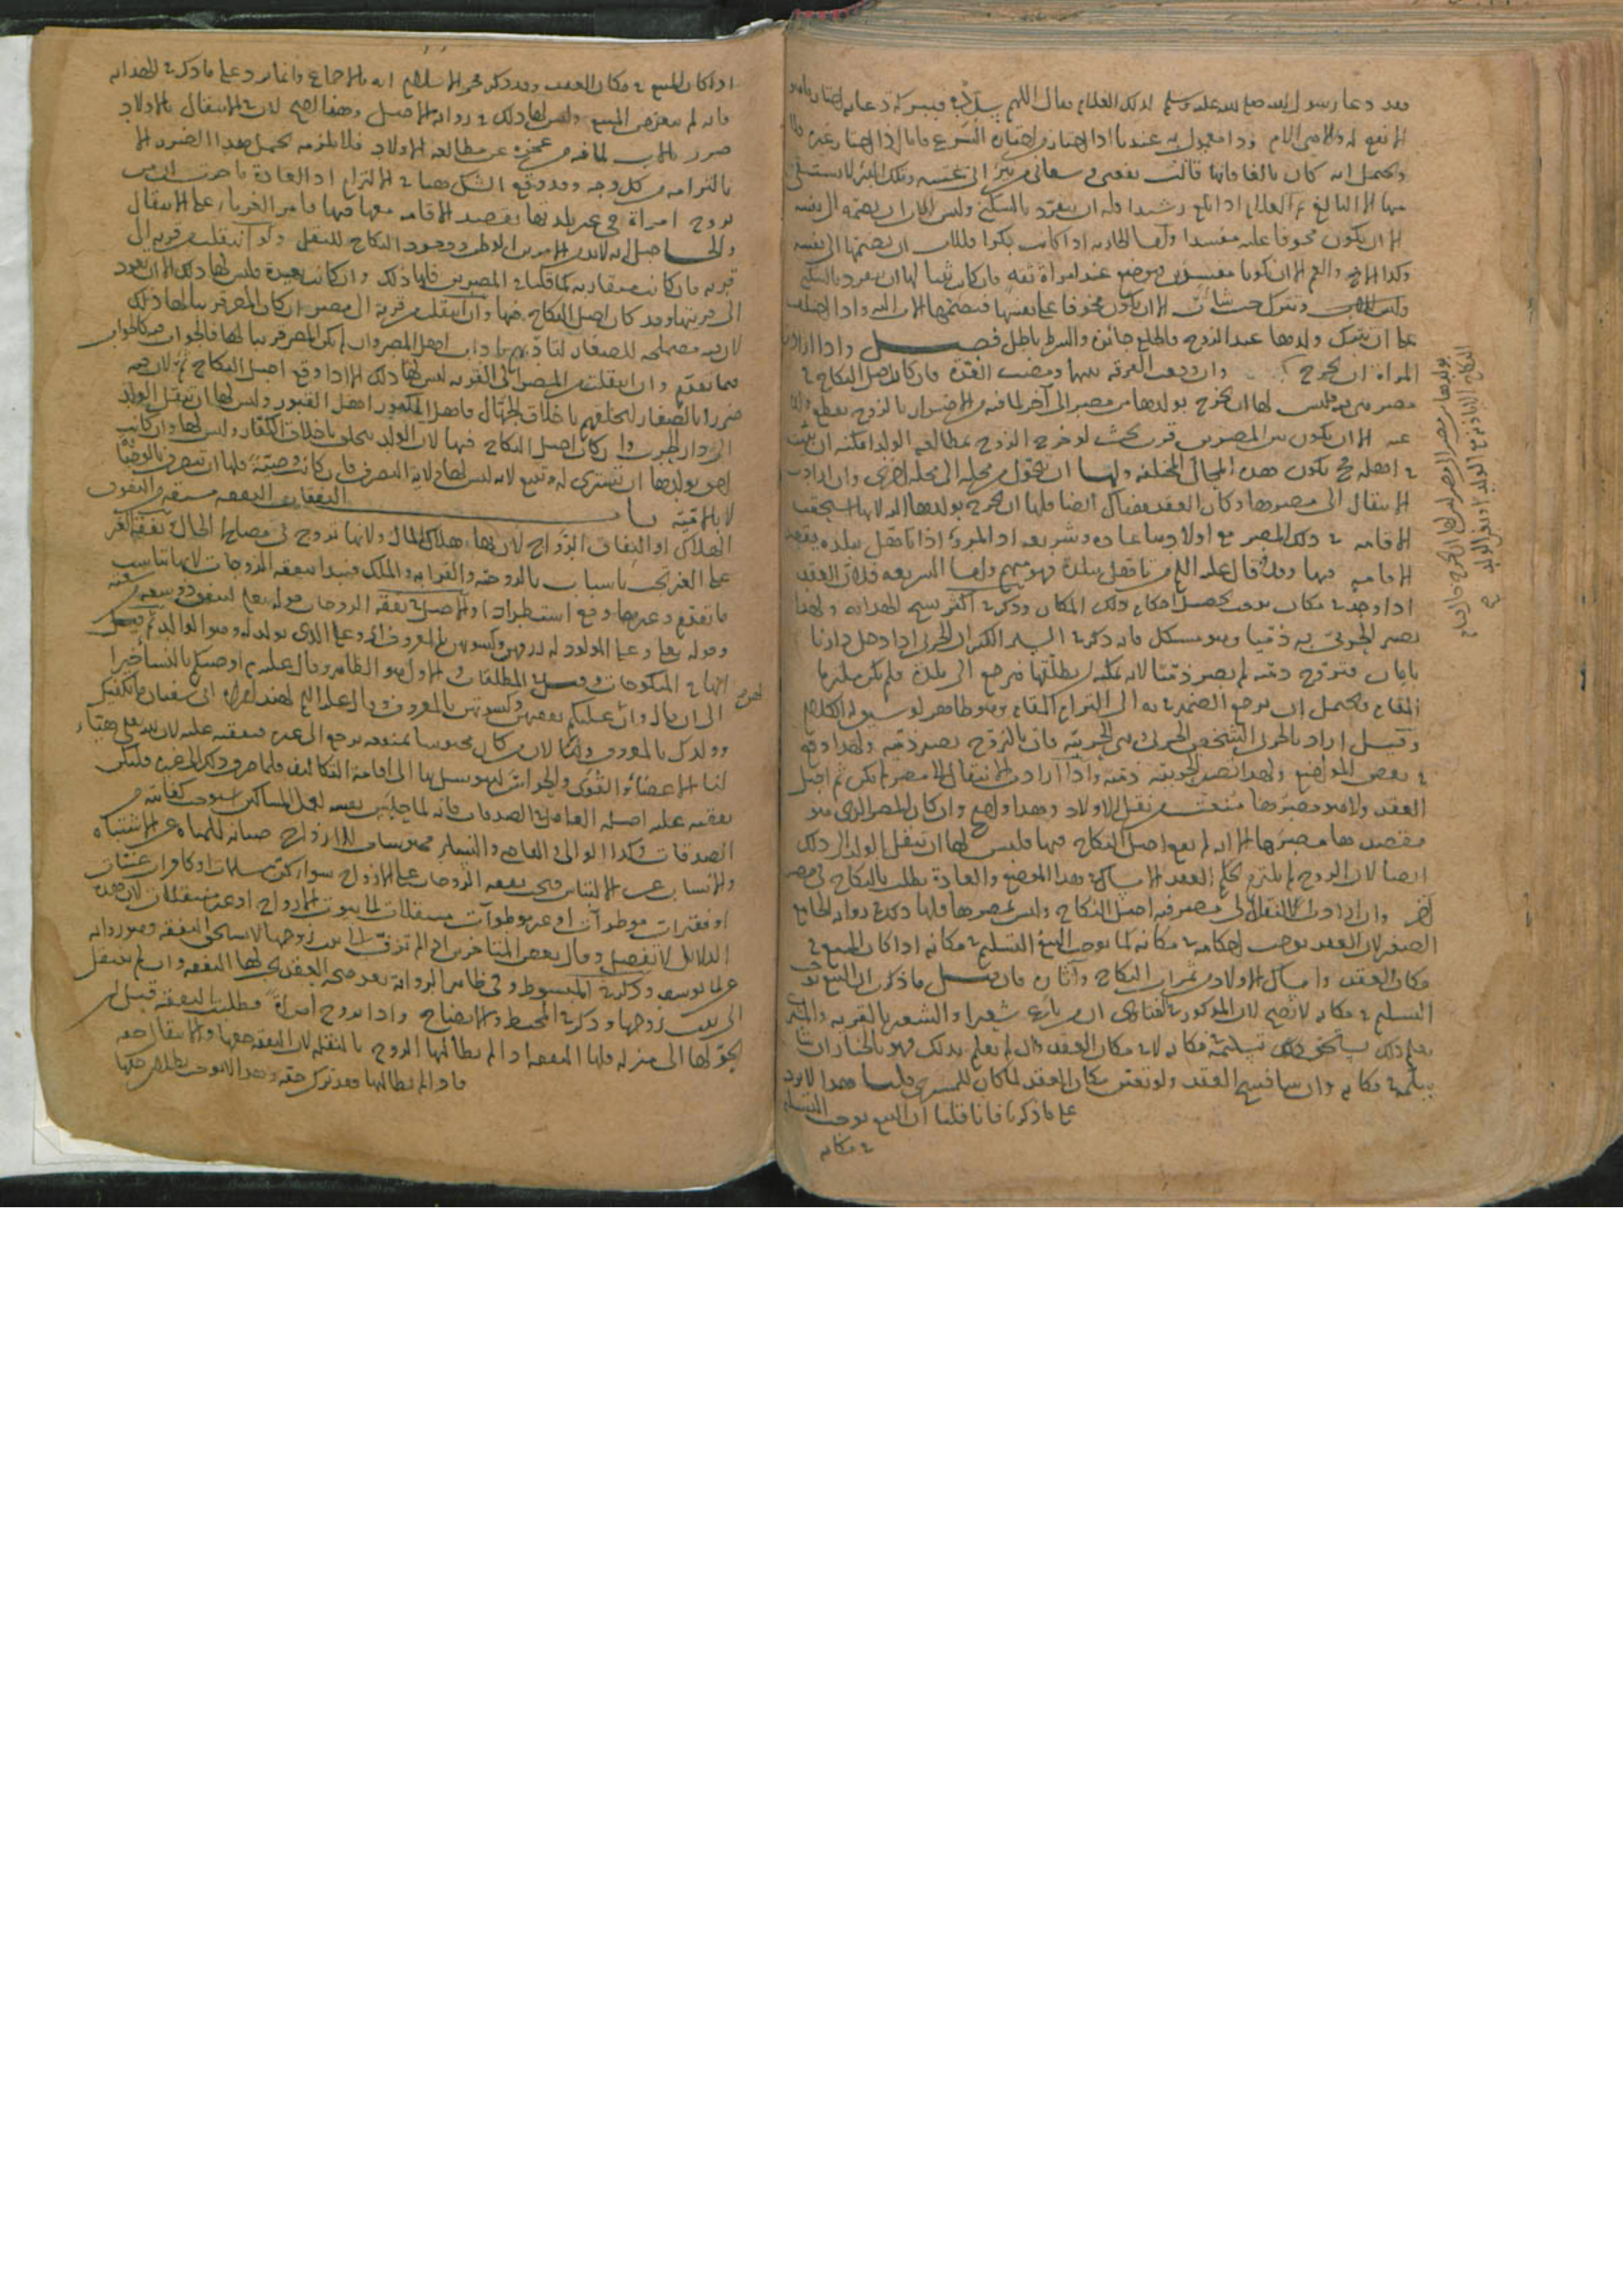 فقد دعا رسول الله صلى الله عليه وسلم لذلك الغلام فقال اللهم سدده فببركة دعايه اختار ما هو
الانفع له ولا حق الام ودا معمول به عندنا اذا اختار من اختاره الشرع فاما اذا اختار غيره فلا
ويحتمل انه كان بالغا فانها قالت نفعني وسقاني من بئر ابي عنبسة وتلك البئر لا يستقي
منها الا البالغ ثم الغلام اذا بلغ رشيدا فله ان يتفرد بالسكنى وليس للاب ان يضمه الى نفسه
الا ان يكون مخوفا عليه مفسدا واما الجارية اذا كانت بكرا فللاب ان يضمها الى نفسه
وكذا الاخ والعم الا ان يكونا مفسدين فتوضع عند امراة ثقة فان كانت ثيبا لها ان تتفرد بالسكنى
وليس للاب وتنزل حيث شاءت الا ان يكون مخوفا على نفسها فيضمها الاب اليه واذا اختلعت
على ان تترك ولدها عند الزوج فالخلع جائز والشرط باطل فصل واذا ارادت
المراة ان تخرج وان وقعت الفرقة بينهما ومضت العدة فان كان اصل النكاح في
مصر فليس لها ان تخرج بولدها من مصر الى آخر لما فيه من الاضرار بالزوج بقطع ولده
عنه الا ان يكون بين المصرين قرب بحيث لو خرج الزوج لمطالعة الولد امكنه ان يبيت
في اهله فح يكون هذه المحال المختلفة ولها ان تتحول من محلة الى محلة اخرى وان ارادت
الانتقال الى مصرها وكان العقد هناك ايضا فلها ان تخرج بولدها اليه لانها استحقت
الاقامة في ذلك المصر مع اولادها عادة وشريعة اذ المرء اذا تاهل ببلدة يقصد
الاقامة فيها وقد قال عليه السلم من تاهل ببلدة فهو منهم واما الشريعة فلان العقد
اذا وجد في مكان يوجب تحصيل احكامه في ذلك المكان وذكر في اكثر نسخ الهداية ولهذا
يصير الحربي به ذميا وهو مشكل فانه ذكر في السير الكبير ان الحربي اذا دخل دارنا
بامان فتزوج ذمية لم يصر ذميا لانه يمكنه ان يطلقها فيرجع الى بلده فلم يكن ملتزما
المقام ويحتمل ان يرجع الضمير في به الى التزام المقام وهو ظاهر لو سبق له الكلام
وقيل اراد بالحربي الشخص الحربي وهي الحربية فان بالتزوج تصير ذمية ولهذا وقع
في بعض المواضع ولهذا تصير الحربية ذمية واذا ارادت الانتقال الى مصر لم يكن ثم اصل
العقد ولا هو مصرها منعت من نقل الاولاد وهذا واضح وان كان المصر الذي هو
مقصدها مصرها الا انه لم يقع اصل النكاح فيها فليس لها ان تنقل الولد الى ذلك
ايضا لان الزوج لم يلتزم بحكم العقد الامساك في هذا الموضع والعادة بطلت بالنكاح في مصر
آخر وان ارادت النقل الى مصر فيه اصل النكاح وليس بمصرها فلها ذلك في رواية الجامع
الصغير لان العقد يوجب احكامه في مكانه كما يوجب البيع التسليم في مكانه اذا كان المبيع في
مكان العقد وامساك الاولاد من ثمرات النكاح وآثاره فان قيل ما ذكر ان البيع يوجب
التسليم في مكانه لا يصح لان المذكور في الفتاوى ان من باع شعيرا والشعير بالقرية والمشتري
يعلم ذلك يستحق ذلك تسليمه في مكانه لا في مكان العقد وان لم يعلم بذلك فهو بالخيار ان شا
يسلمه في مكانه وان شا فسخ العقد ولو تعين مكان العقد لما كان للمشتري قلنا هذا لا يرد
على ما ذكرنا فانا قلنا ان البيع يوجب التسليم
في مكانه
بولدها من مصر الى مصر ليس لها ان تخرج
اذا كان المبيع في مكان العقد وقد ذكر فخر الاسلام انه بالاجماع وانما يرد على ما ذكر في الهداية
فانه لم يتعرض المبيع وليس لها ذلك في رواية الاصل وهذا اصح لان في الانتقال بالاولاد
ضررا بالاب لما فيه من عجزه عن مطالعة الاولاد فلا يلزمه تحمل هذا الضرر الا
بالتزامه من كل وجه وقد وقع الشك ههنا في الالتزام اذ العادة ما جرت ان من
تزوج امراة في غير بلدتها يقصد الاقامة معها فيها فامر الغرباء على الانتقال
والحاصل انه لا بد من الامرين الوطن ووجود النكاح للنقل ولو انتقلت من قرية الى
قرية فان كانت متقاربة كما قلنا في المصرين فلها ذلك وان كانت بعيدة فليس لها ذلك الا ان تعود
الى قريتها وقد كان اصل النكاح فيها وان انتقلت من قرية الى مصر ان كان المصر قريبا لها ذلك
لان فيه مصلحة للصغار لتادبهم باداب اهل المصر وان لم يكن المصر قريبا لها فالجواب فيه كالجواب
فيما تقدم وان انتقلت من المصر الى القرية ليس لها ذلك الا اذا وقع اصل النكاح ثم لان فيه
ضررا بالصغار لتخلقهم باخلاق الجهال فاهل الكفور اهل القبور وليس لها ان تنقل الولد
الى دار الحرب وان كان اصل النكاح فيها لان الولد يتخلق باخلاق الكفار وليس لها وان كانت
احق بولدها ان تشتري له وتبيع لانه ليس لها ولاية التصرف فان كانت وصيتة فلها ان تتصرف بالوصية
لا بالامية باب النفقات النفقة مشتقة من النفوق
الهلاك او النفاق الرواج لان بها هلاك المال ولانها تروج في مصالح الحال نفقة الغير
على الغير تجب باسباب بالزوجية والقرابة والملك فيبدا بنفقة الزوجات لانها تناسب
ما تقدم وغيرها وقع استطرادا والاصل في نفقة الزوجات قوله تعالى لينفق ذو سعة من سعته
وقوله تعالى وعلى المولود له رزقهن وكسوتهن بالمعروف اي وعلى الذي يولد له وهو الوالد ثم قيل
انها في المنكوحات وقيل في المطلقات والاول هو الظاهر وقال عليه السلم اوصيكم بالنسا خيرا
الى ان قال وان عليكم نفقتهن وكسوتهن بالمعروف وقال عليه السلم لهند امراة ابي سفيان ما يكفيك
وولدك بالمعروف وايضا لان من كان محبوسا بمنفعة يرجع الى غيره فنفقته عليه لان الله تعالى هيا
لنا الاعضاء والقوى والجوارح ليتوسل بها الى اقامة التكاليف فلما صرف ذلك الى غيره فلتكن
نفقته عليه اصله العامل في الصدقات فانه لما حبس نفسه لعمل المساكين استوجب كفايته من
الصدقات وكذا الوالي والقاضي والنساء محبوسات للازواج صيانة للمياه عن الاشتباه
والانساب عن الالتباس فتجب نفقة الزوجات على الازواج سواء كن مسلمات او كافرات غنيات
او فقيرات موطوآت او غير موطوآت منتقلات الى بيوت الازواج او غير منتقلات لان هذه
الدلائل لا تفصل وقال بعض المتاخرين اذا لم تزف الى بيت زوجها لا تستحق النفقة وهو رواية
عن ابي يوسف وذكر في المبسوط وفي ظاهر الرواية بعد صحة العقد يجب لها النفقة وان لم تنتقل
الى بيت زوجها وذكر في المحيط والايضاح واذا تزوج امراة فطلبت النفقة قبل ان
يحولها الى منزله فلها النفقة اذا لم يطالبها الزوج بالنقلة لان النفقة حقها والانتقال حقه
فاذا لم يطالبها فقد ترك حقه وهذا لا يوجب بطلان حقها